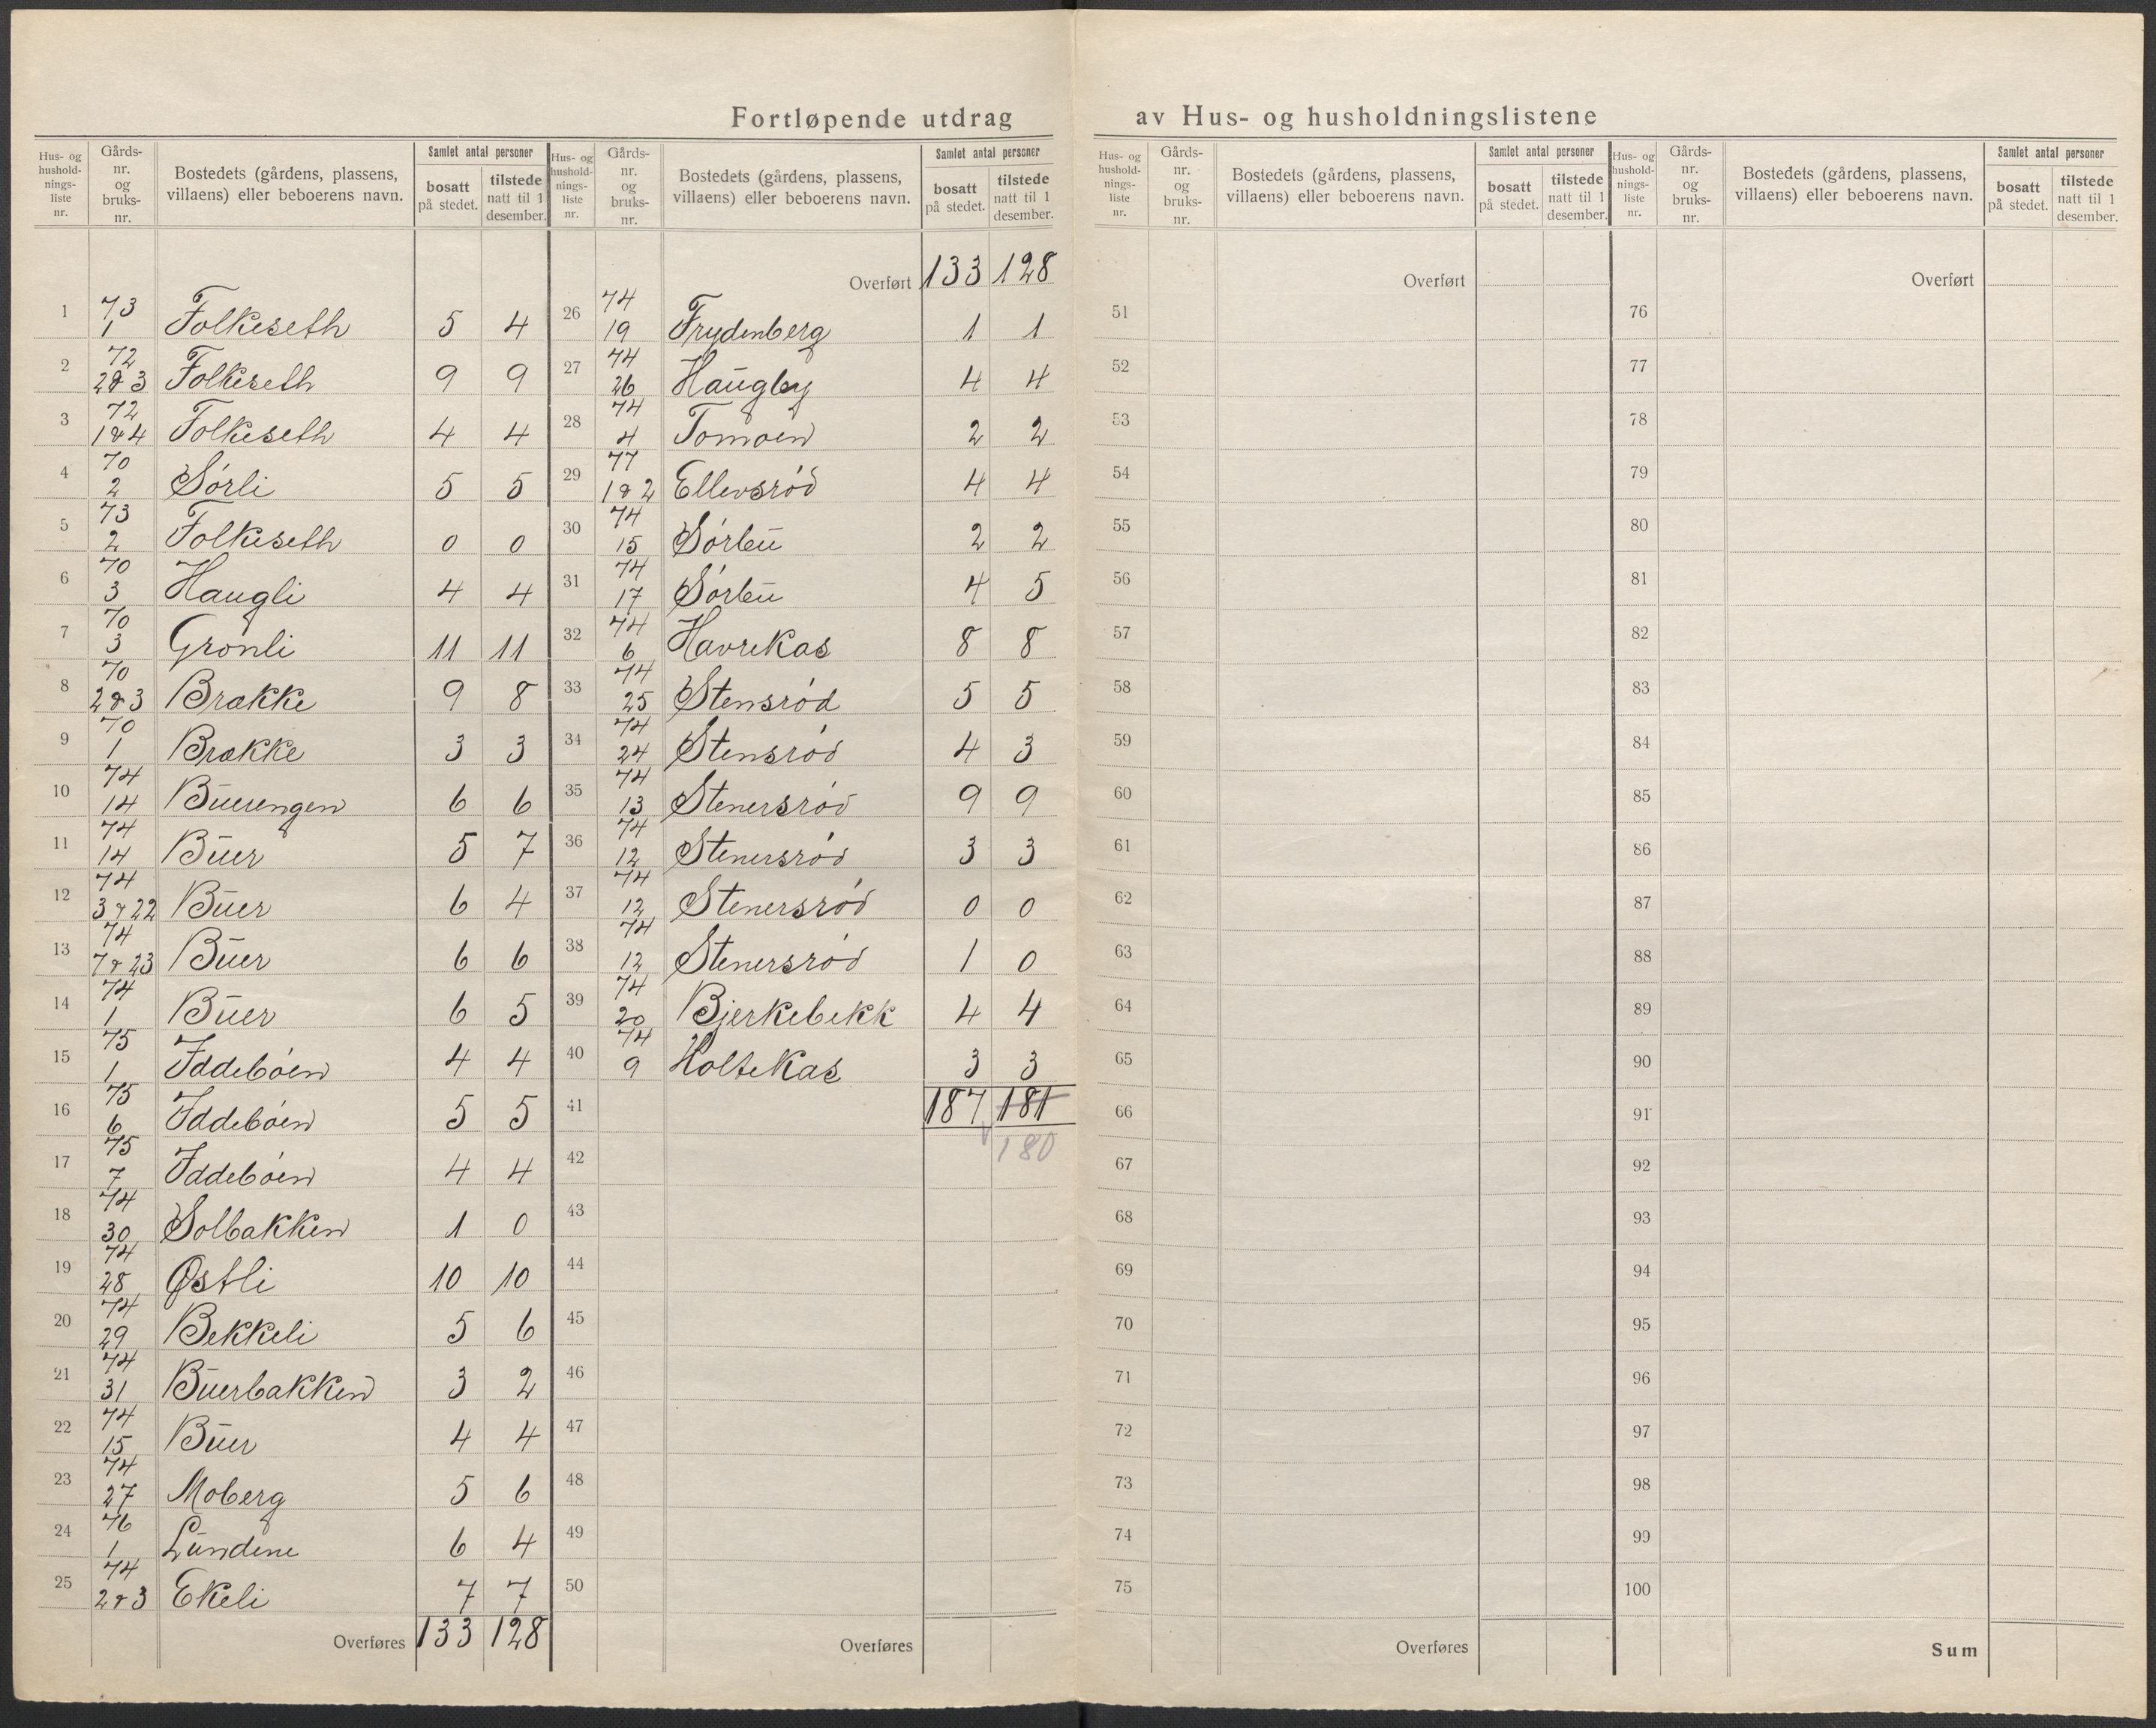 Fortløpende utdrag av Hus- og husholdningslistene
Hus- og husholdningsliste nr. | Gårds-nr. og bruks-nr. | Bostedets (gårdens, plassens, villaens) eller beboerens navn. | Samlet antal personer bosatt på stedet. | tilstede natt til 1 desember.
1 | 73 / 1 | Folkeseth | 5 | 4
2 | 72 / 2&3 | Folkeseth | 9 | 9
3 | 72 / 1&4 | Folkeseth | 4 | 4
4 | 70 / 2 | Sørli | 5 | 5
5 | 73 / 2 | Folkeseth | 0 | 0
6 | 70 / 3 | Haugli | 4 | 4
7 | 70 / 3 | Grønli | 11 | 11
8 | 70 / 2&3 | Brække | 9 | 8
9 | 70 / 1 | Brække | 3 | 3
10 | 74 / 14 | Buerengen | 6 | 6
11 | 74 / 14 | Buer | 5 | 7
12 | 74 / 3&22 | Buer | 6 | 4
13 | 74 / 7&23 | Buer | 6 | 6
14 | 74 / 1 | Buer | 6 | 5
15 | 75 / 1 | Iddebøen | 4 | 4
16 | 75 / 6 | Iddebøen | 5 | 5
17 | 75 / 7 | Iddebøen | 4 | 4
18 | 74 / 30 | Solbakken | 1 | 0
19 | 74 / 28 | Østli | 10 | 10
20 | 74 / 29 | Bekkeli | 5 | 6
21 | 74 / 31 | Buerbakken | 3 | 2
22 | 74 / 15 | Buer | 4 | 4
23 | 74 / 27 | Moberg | 5 | 6
24 | 76 / 1 | Lundene | 6 | 4
25 | 74 / 2&3 | Ekeli | 7 | 7
Overføres 133 128
Hus- og husholdningsliste nr. | Gårds-nr. og bruks-nr. | Bostedets (gårdens, plassens, villaens) eller beboerens navn. | Samlet antal personer bosatt på stedet. | tilstede natt til 1 desember.
Overført 133 128
26 | 74 / 19 | Frydenberg | 1 | 1
27 | 74 / 26 | Haugby | 4 | 4
28 | 74 / 4 | Tomoen | 2 | 2
29 | 77 / 1&2 | Ellevsrød | 4 | 4
30 | 74 / 15 | Sørbu | 2 | 2
31 | 74 / 17 | Sørbu | 4 | 5
32 | 74 / 6 | Havrekas | 8 | 8
33 | 74 / 25 | Stensrød | 5 | 5
34 | 74 / 24 | Stensrød | 4 | 3
35 | 74 / 13 | Stenersrød | 9 | 9
36 | 74 / 12 | Stenersrød | 3 | 3
37 | 74 / 12 | Stenersrød | 0 | 0
38 | 74 / 12 | Stenersrød | 1 | 0
39 | 74 / 20 | Bjerkebekk | 4 | 4
40 | 74 / 9 | Holtekas | 3 | 3
41 187 181
42 180
43
44
45
46
47
48
49
50
Overføres
Hus- og husholdningsliste nr. | Gårds-nr. og bruks-nr. | Bostedets (gårdens, plassens, villaens) eller beboerens navn. | Samlet antal personer bosatt på stedet. | tilstede natt til 1 desember.
Overført
51
52
53
54
55
56
57
58
59
60
61
62
63
64
65
66
67
68
69
70
71
72
73
74
75
Overføres
Hus- og husholdningsliste nr. | Gårds-nr. og bruks-nr. | Bostedets (gårdens, plassens, villaens) eller beboerens navn. | Samlet antal personer bosatt på stedet. | tilstede natt til 1 desember.
Overført
76
77
78
79
80
81
82
83
84
85
86
87
88
89
90
91
92
93
94
95
96
97
98
99
100
Sum